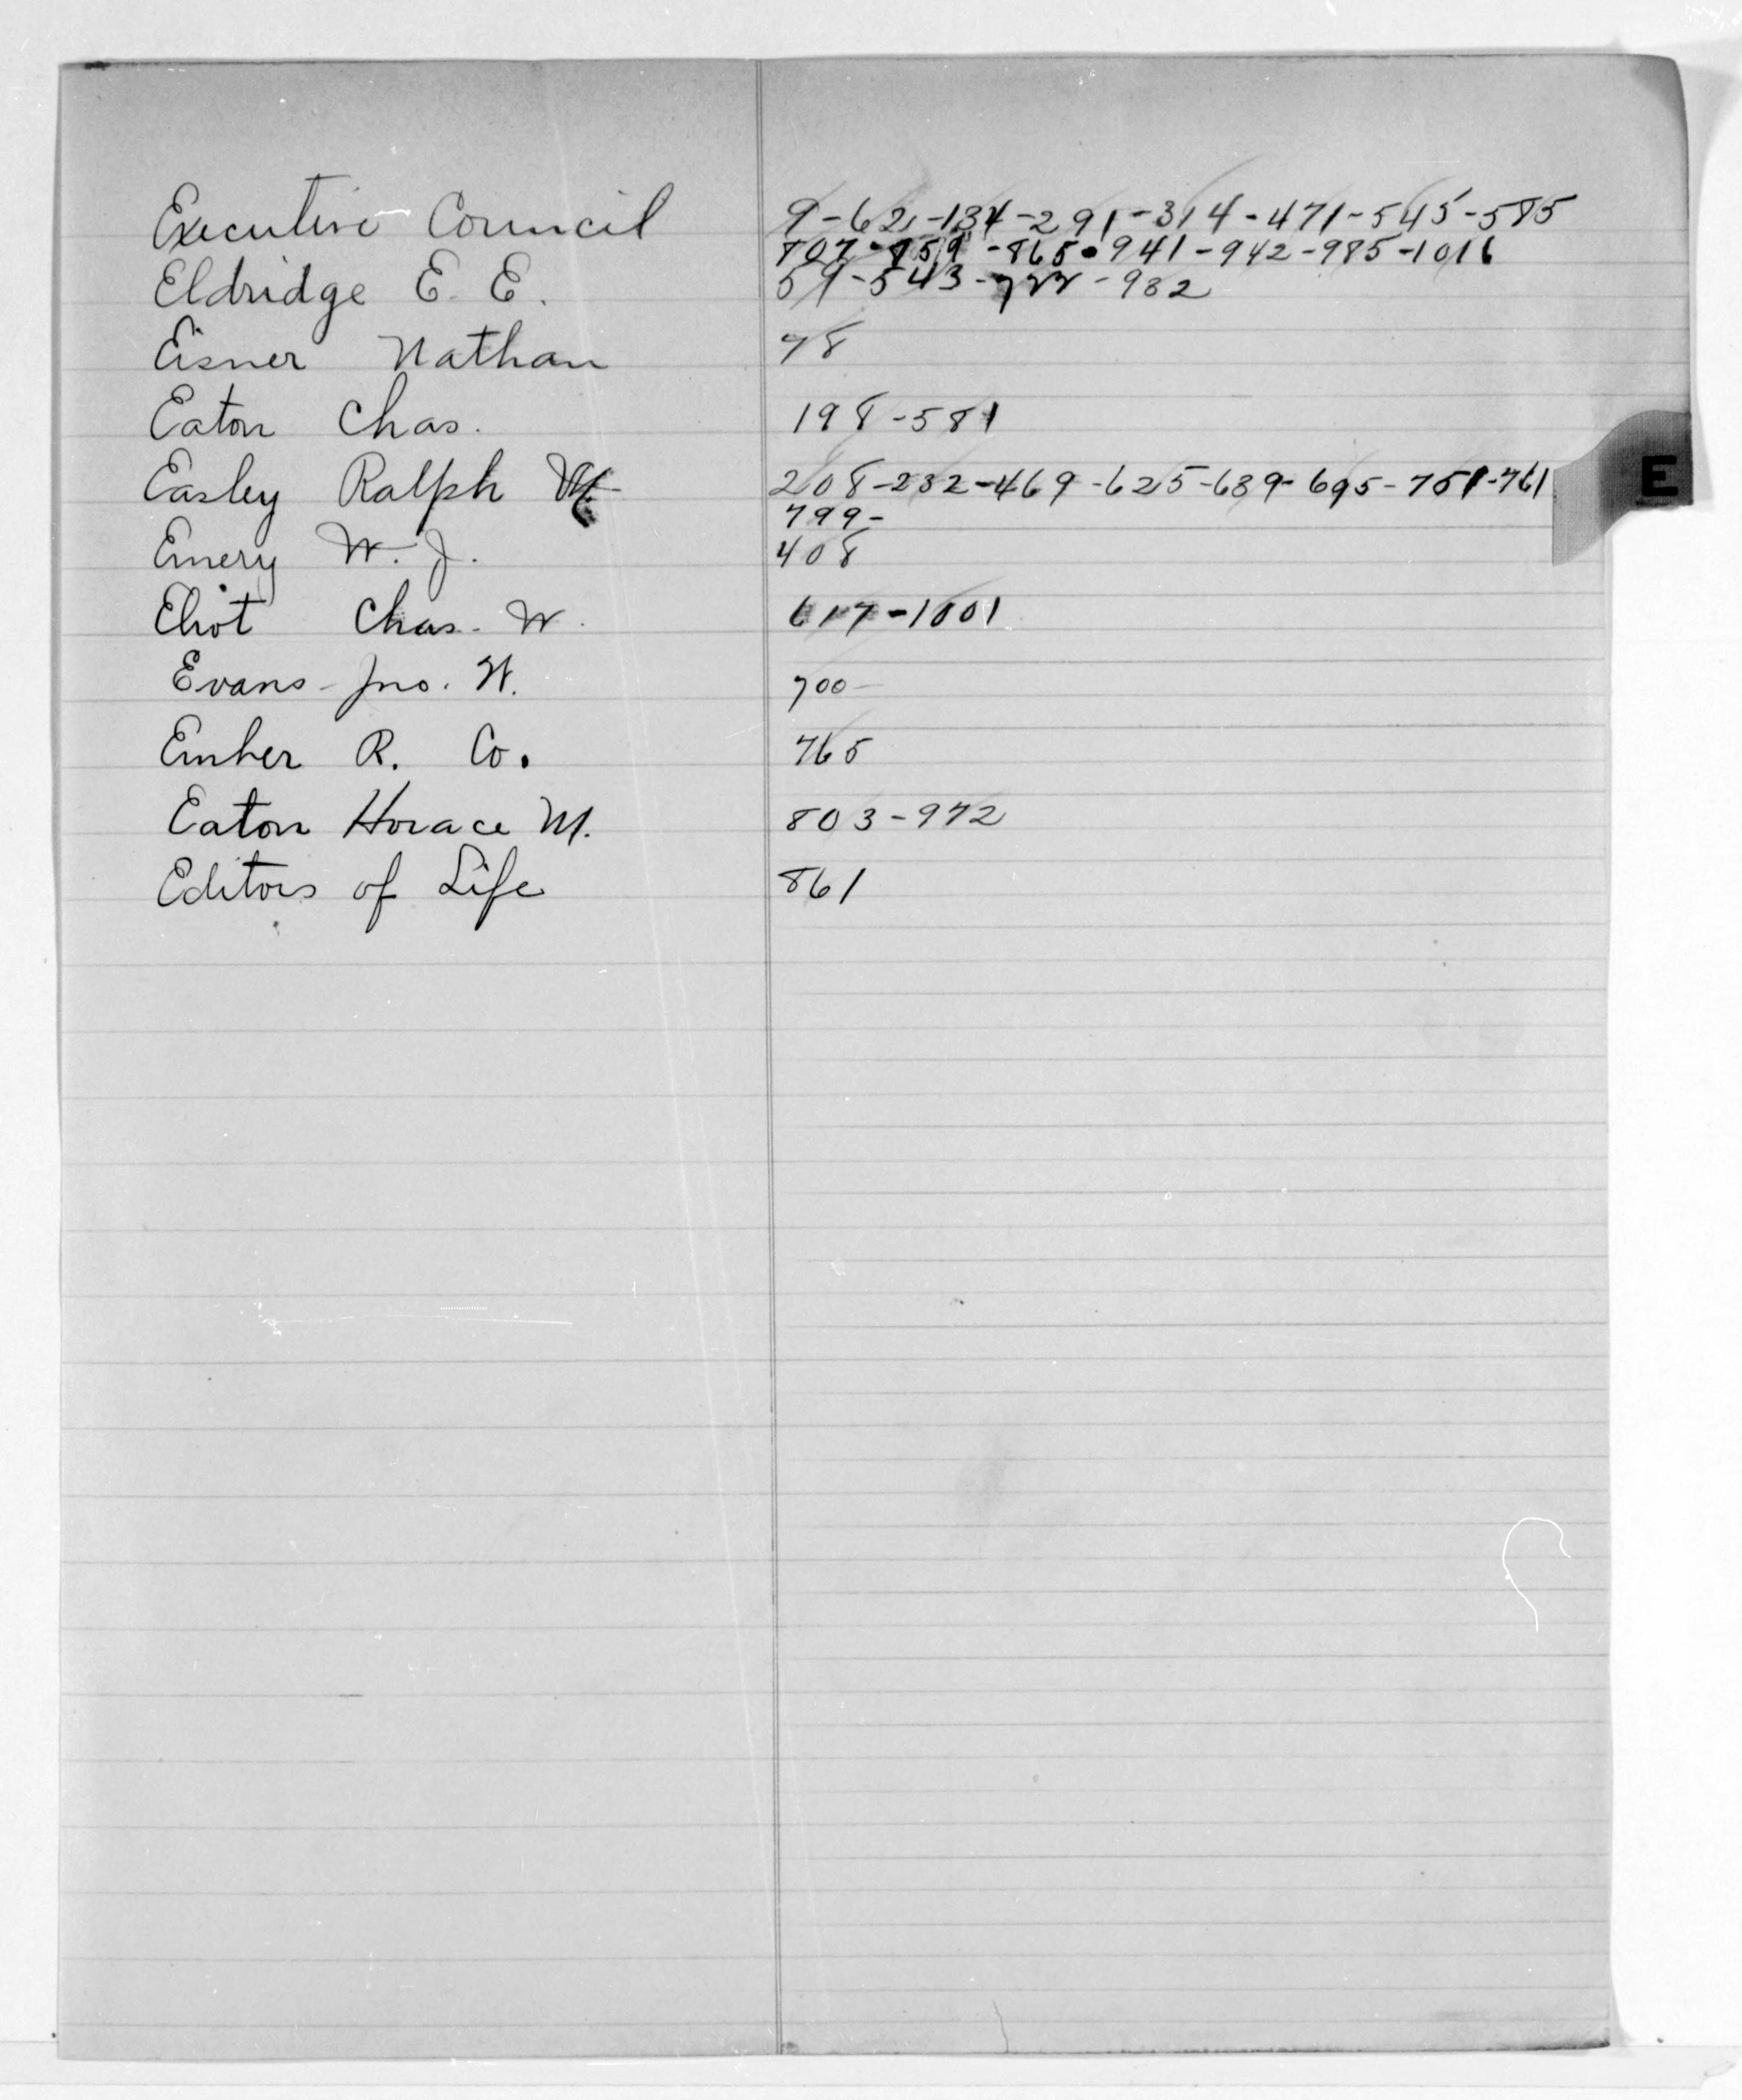 Executive Council 9-62-134-291-314-471-545-585
807-859-865-941-942-985-1016
Eldridge E. E. 59-543-722-982
Eisner Nathan 78
Eaton Chas. 198-581
Easley Ralph M. 208-232-469-625-639-695-751-761
799-
E
Emery W. J. 408
Eliot Chas. W. 617-1001
Evans Jno. W. 700-
Ember R. Co. 765
Eaton Horace M. 803-972
Editors of Life 861